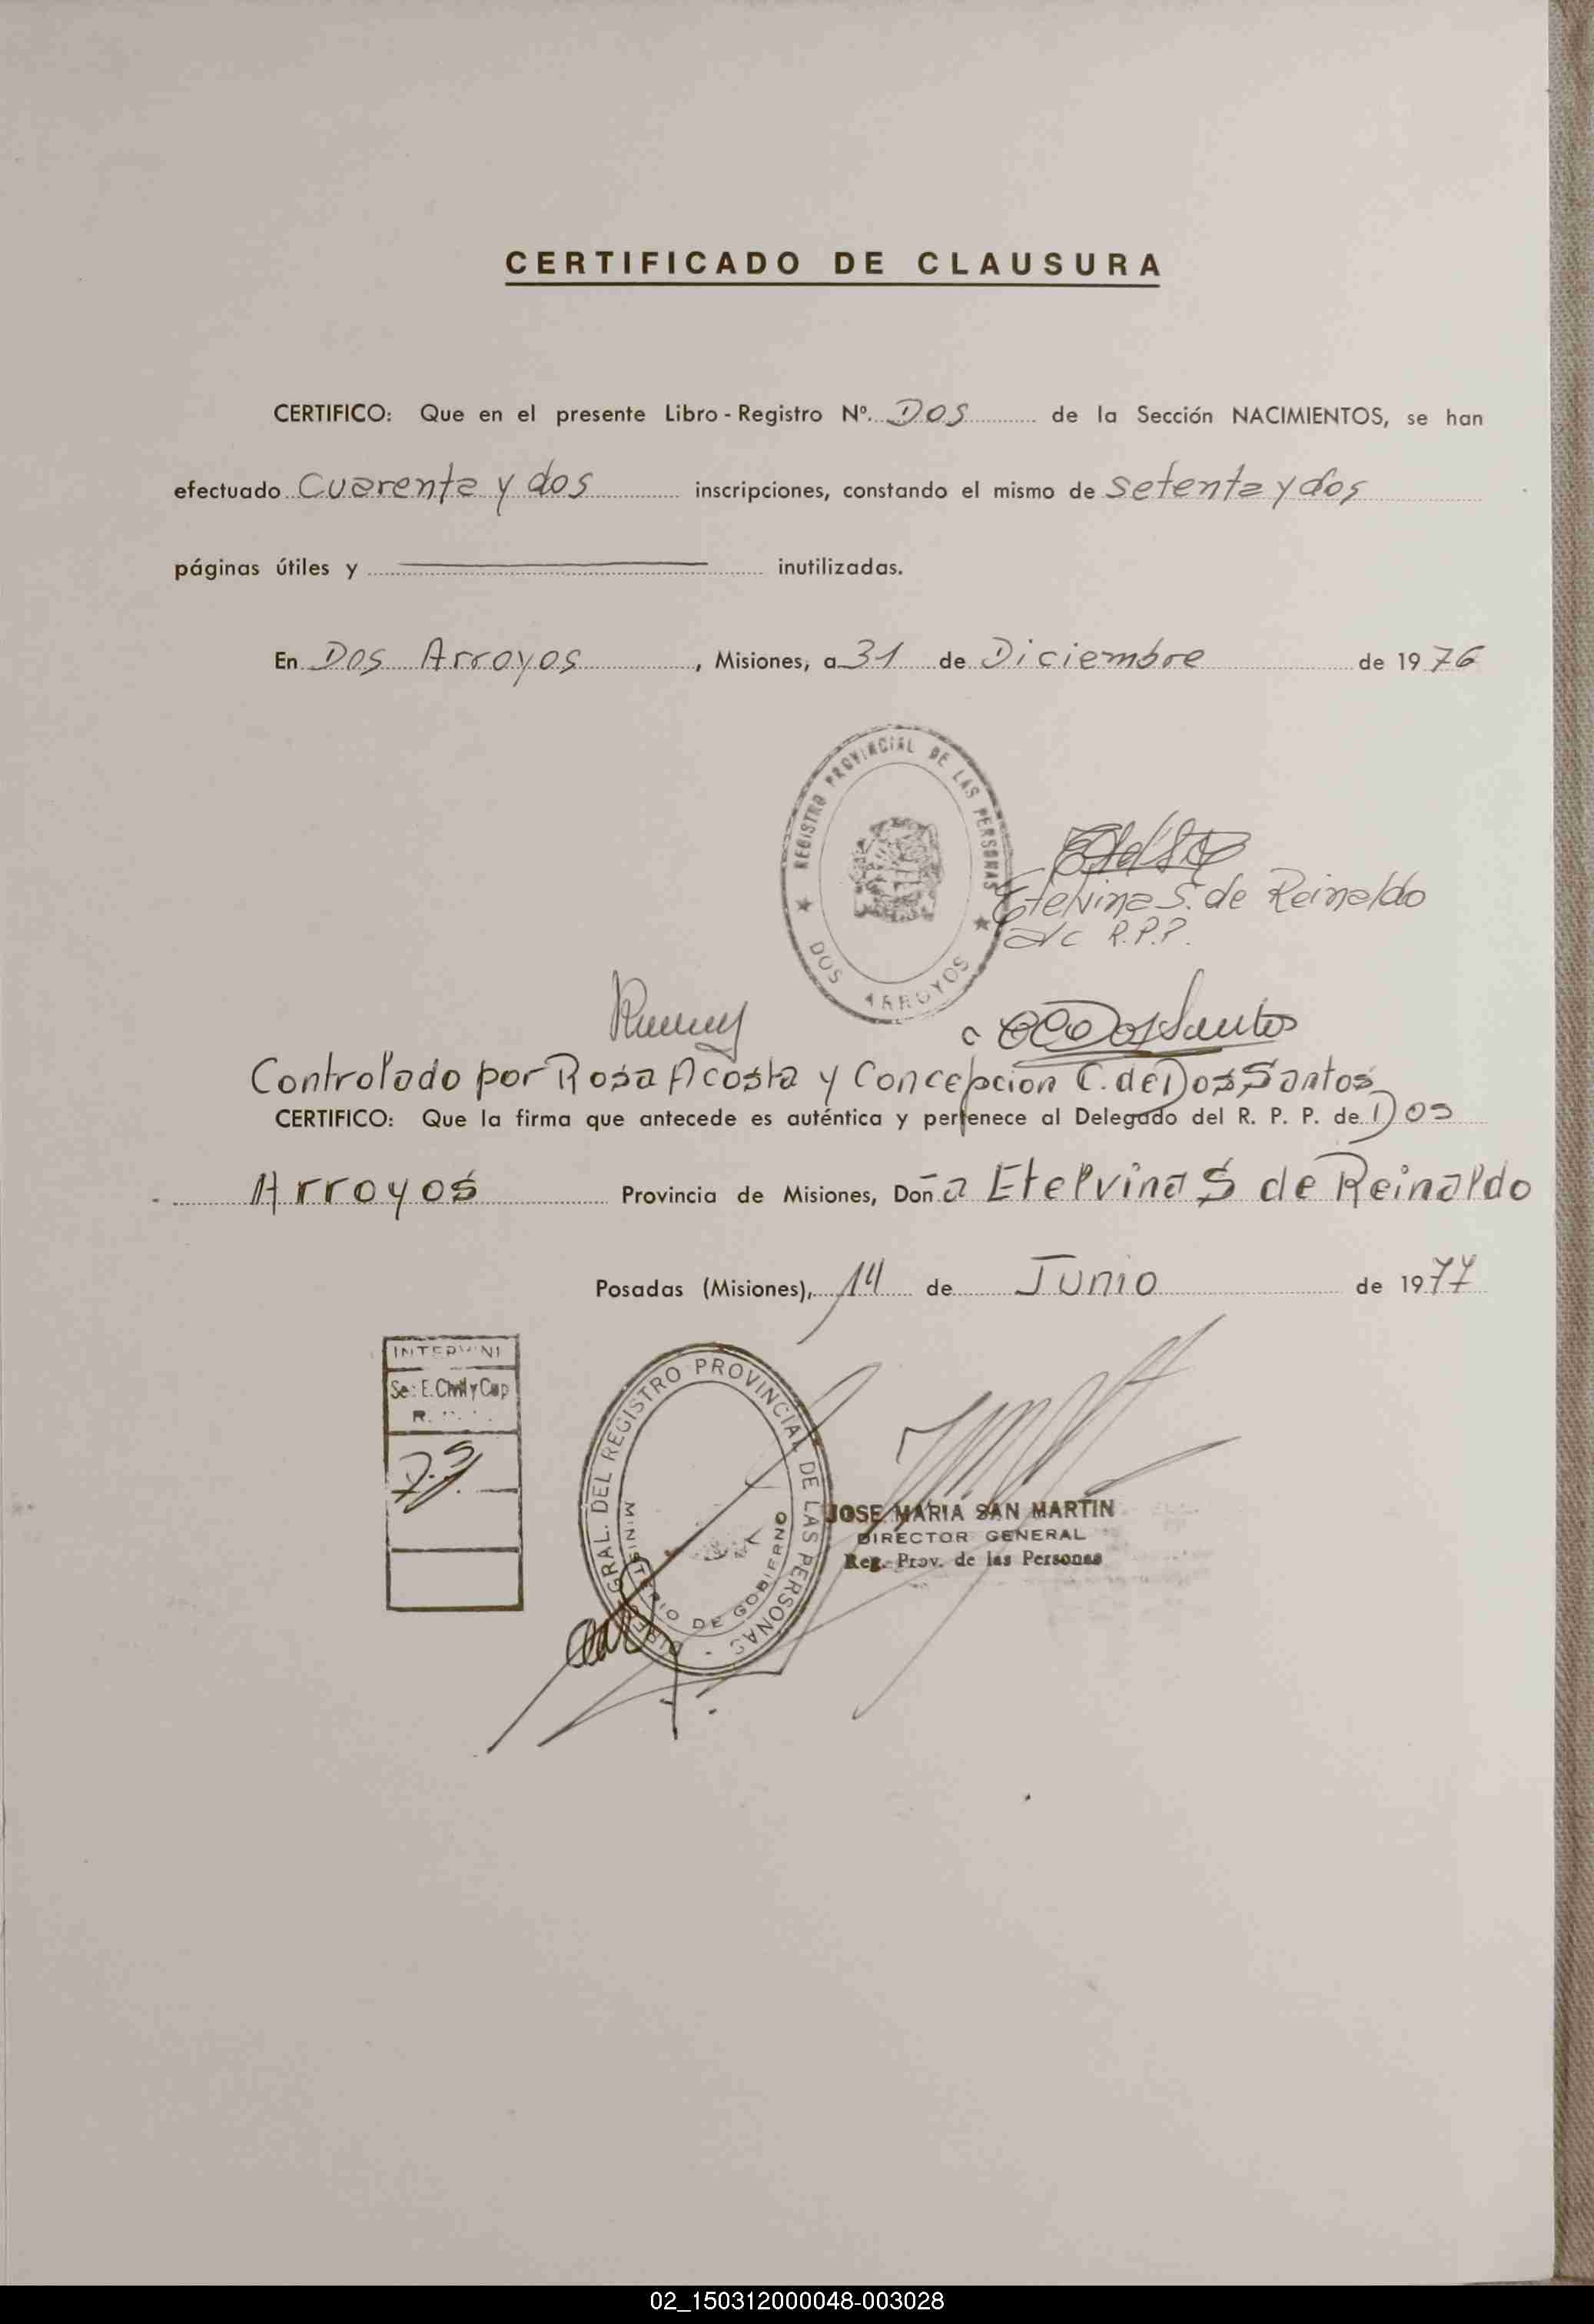 CERTIFICADO DE CLAUSURA
CERTIFICO: Que en el presente Libro - Registro Nº. Dos de la Sección NACIMIENTOS, se han
efectuado Cuarenta y dos inscripciones, constando el mismo de setenta y dos
páginas útiles y inutilizadas.
En Dos Arroyos, Misiones, a 31 de Diciembre de 1976
REGISTRO PROVINCIAL DE LAS PERSONAS
DOS ARROYOS
Etelvina S. de Reinaldo
a/c R.P.P.
Dos Santos
Controlado por Rosa Acosta y Concepcion C. de Dos Santos
CERTIFICO: Que la firma que antecede es auténtica y pertenece al Delegado del R. P. P. de Dos
Arroyos Provincia de Misiones, Doña Etelvina S de Reinaldo
Posadas (Misiones), 14 de Junio de 1977
INTERVINI
Se: E. Civil y Cap
R.
GRAL. DEL REGISTRO PROVINCIAL DE LAS PERSONAS
MINISTERIO DE GOBIERNO
JOSE MARIA SAN MARTIN
DIRECTOR GENERAL
Reg. Prov. de las Personas
02_150312000048-003028